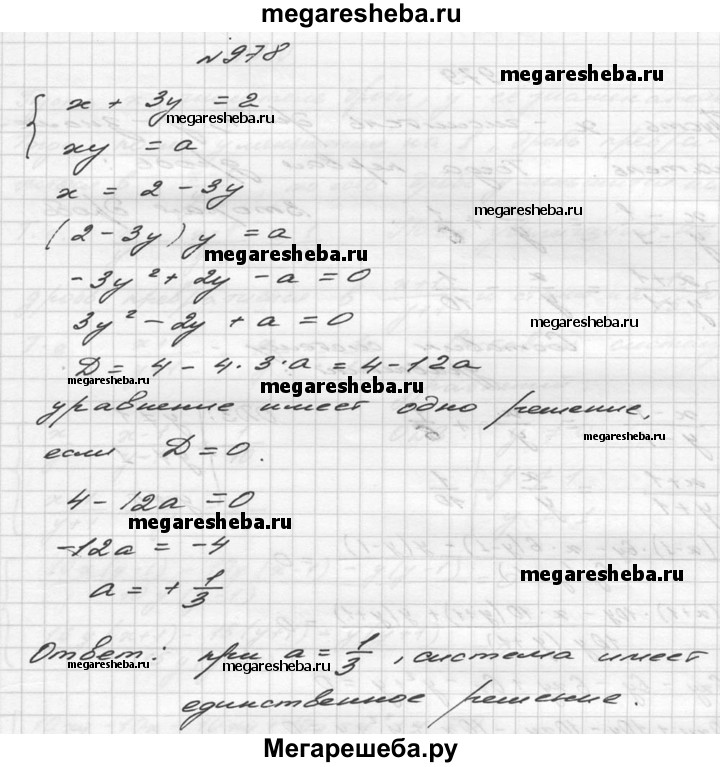 megaresheba.ru
№978
megaresheba.ru
x + 3y = 2
megaresheba.ru
xy = a
x = 2 - 3y
megaresheba.ru
(2 - 3y) y = a
megaresheba.ru
-3y² + 2y - a = 0
3y² - 2y + a = 0
megaresheba.ru
D = 4 - 4·3·a = 4 - 12a
megaresheba.ru megaresheba.ru
уравнение имеет одно решение,
megaresheba.ru
если D = 0.
4 - 12a = 0
megaresheba.ru
-12a = -4
megaresheba.ru
a = + 1/3
Ответ: при a = 1/3, система имеет
megaresheba.ru megaresheba.ru megaresheba.ru
единственное решение.
Мегарешеба.ру